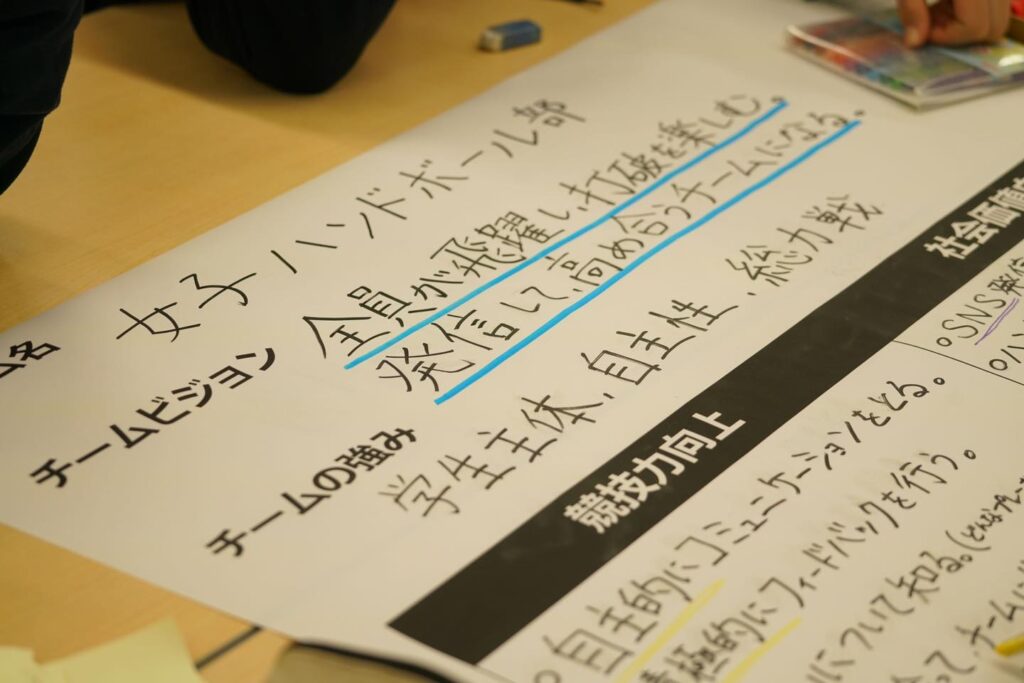 ム名
女子ハンドボール部
チームビジョン
全員が飛躍し、打破を楽しむ。
発信して、高め合うチームになる。
チームの強み
学生主体、自主性、総力戦
競技力向上
社会価値
○自主的にコミュニケーションをとる。
積極的にフィードバックを行う。
について知る。(どんなプレー
ってゲームに
○SNS発信
○ハン